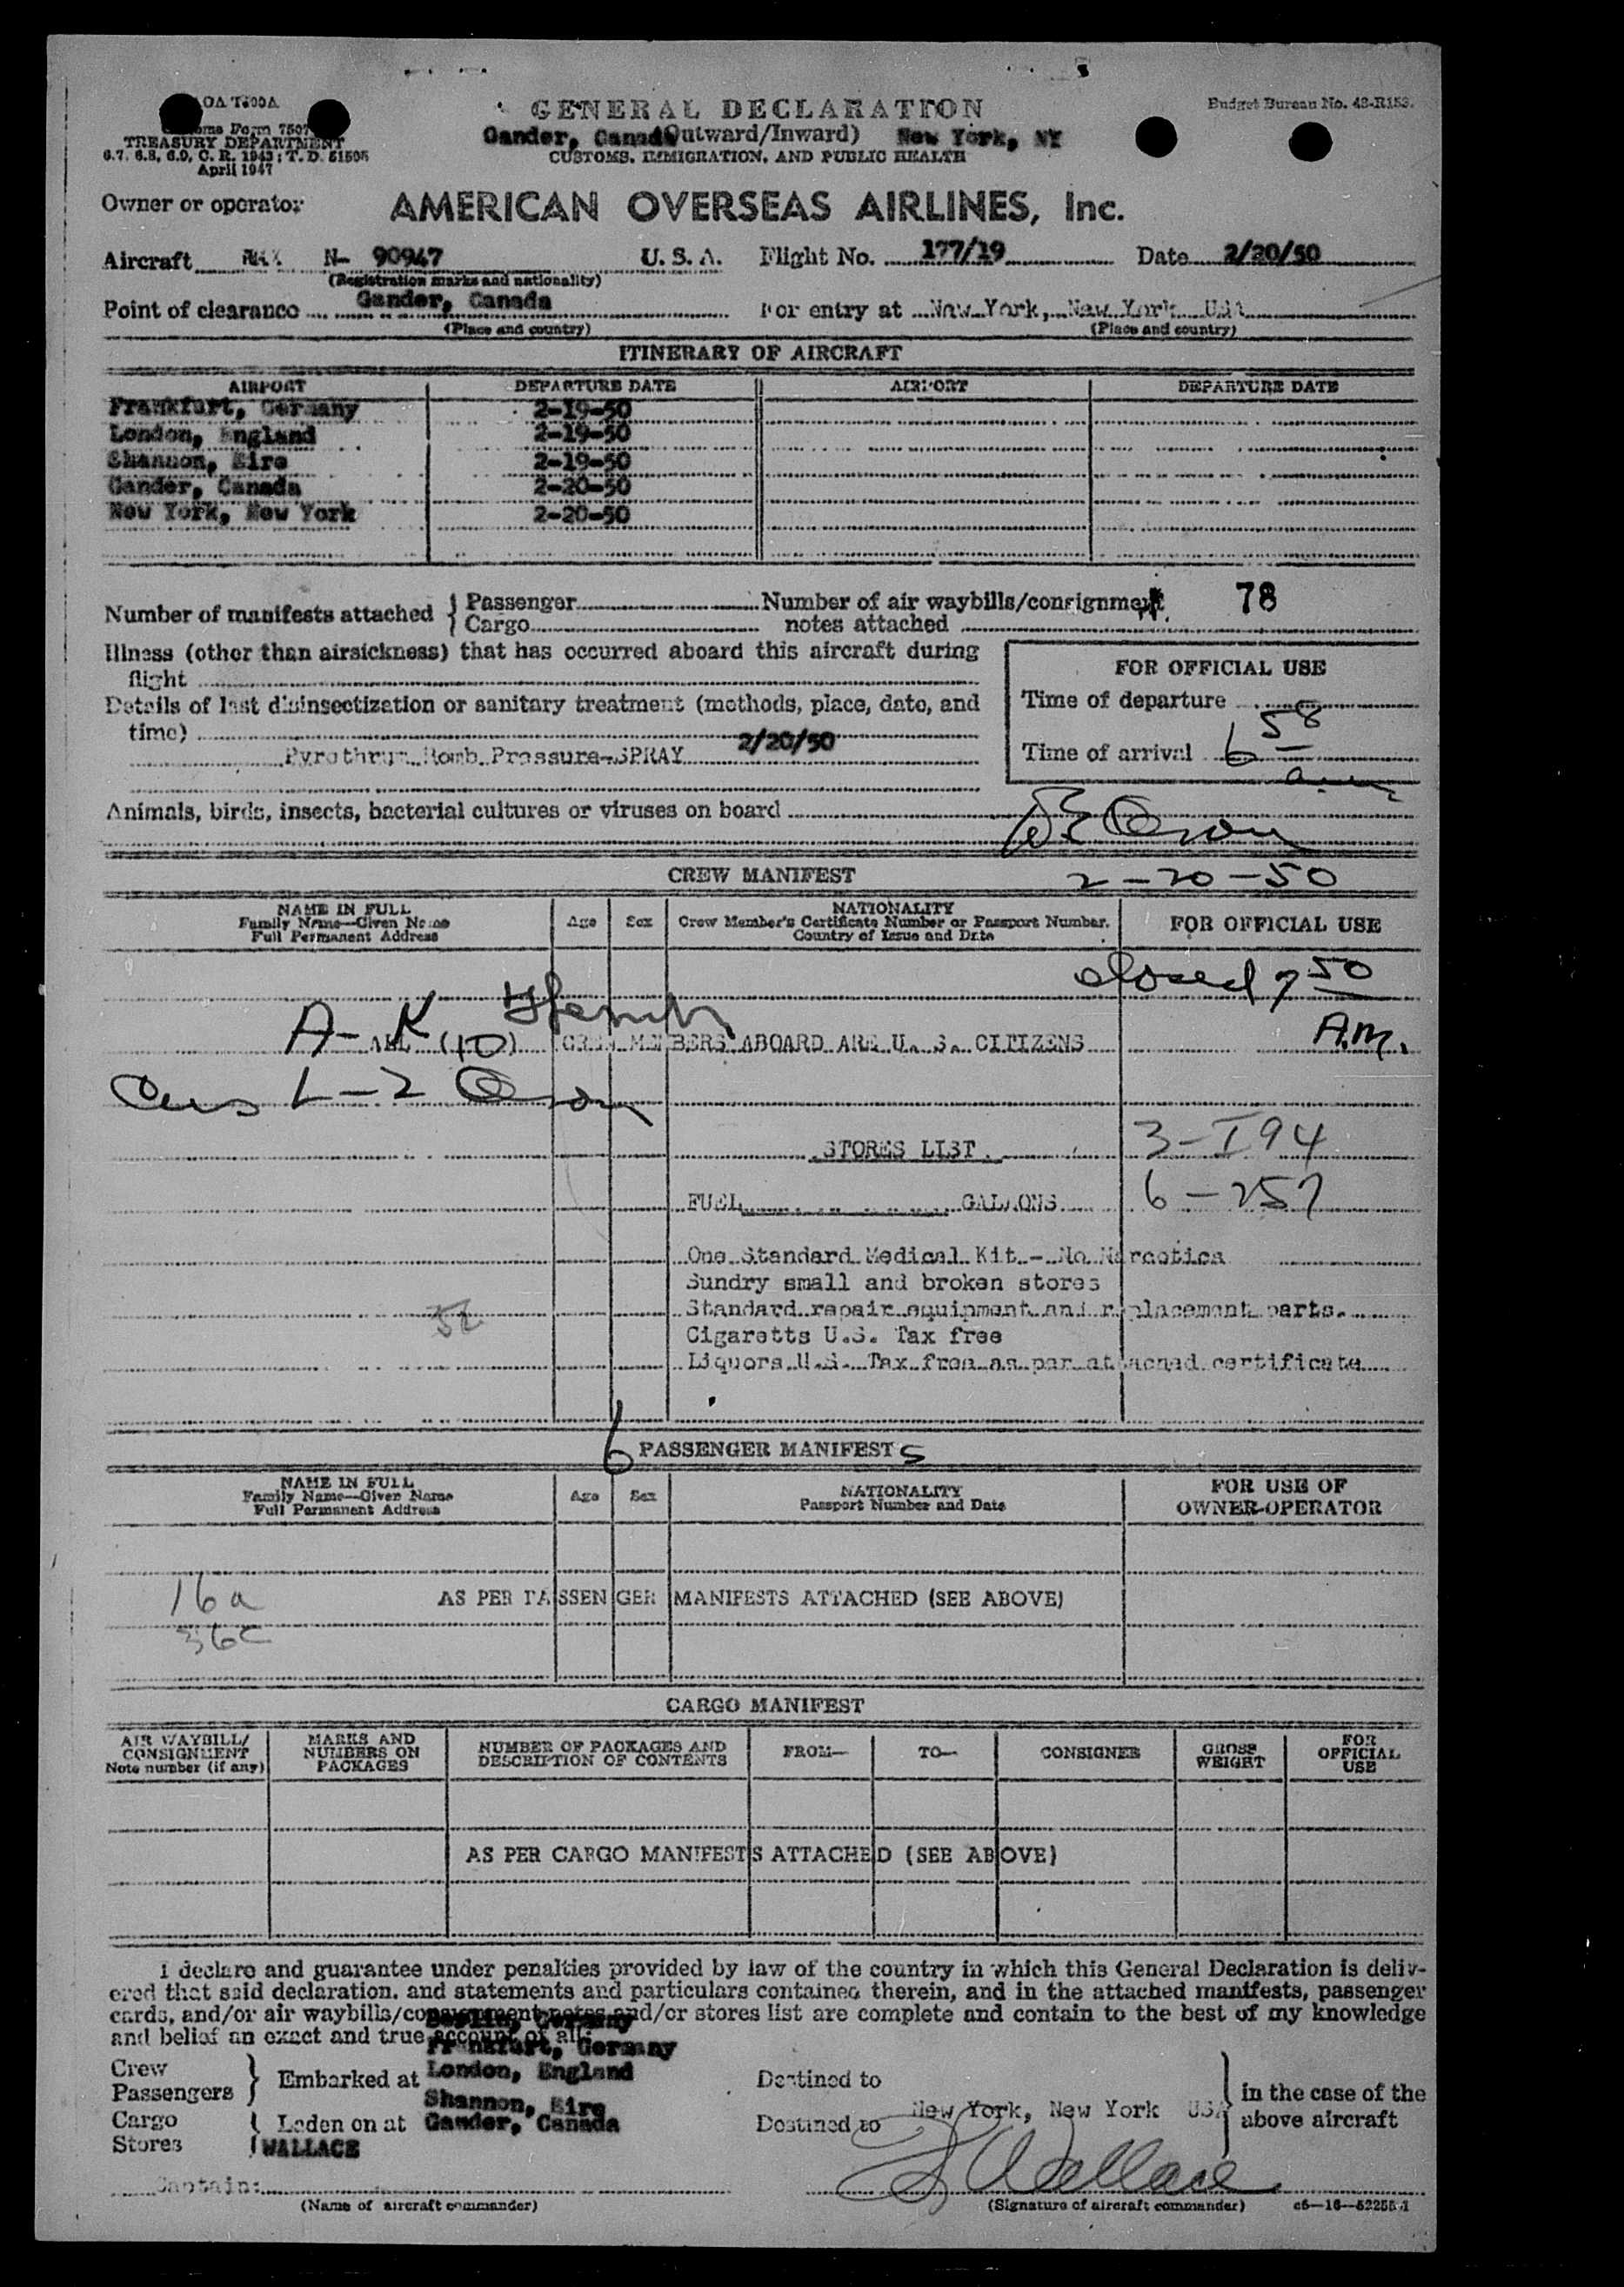 GENERAL DECLARATION
Budget Bureau No. 48-R153.
Gander, Canada (Outward/Inward) New York, NY
TREASURY DEPARTMENT
CUSTOMS, IMMIGRATION, AND PUBLIC HEALTH
6.7, 6.8, 6.9, C. R. 1943; T. D. 51505
April 1947
Owner or operator AMERICAN OVERSEAS AIRLINES, Inc.
Aircraft N- 90947 U. S. A. Flight No. 177/19 Date 2/20/50
(Registration marks and nationality)
Point of clearance Gander, Canada For entry at New York, New York USA
(Place and country) (Place and country)
ITINERARY OF AIRCRAFT
AIRPORT DEPARTURE DATE AIRPORT DEPARTURE DATE
Frankfurt, Germany 2-19-50
London, England 2-19-50
Shannon, Eire 2-19-50
Gander, Canada 2-20-50
New York, New York 2-20-50
Number of manifests attached { Passenger Number of air waybills/consignment 78
Cargo notes attached
Illness (other than airsickness) that has occurred aboard this aircraft during
flight
FOR OFFICIAL USE
Details of last disinsectization or sanitary treatment (methods, place, date, and
time)
Time of departure
Pyrethrum Bomb Pressure-SPRAY 2/20/50
Time of arrival 6 58
a.m.
Animals, birds, insects, bacterial cultures or viruses on board
CREW MANIFEST 2-20-50
NAME IN FULL
Family Name—Given Name
Full Permanent Address
Age Sex
NATIONALITY
Crew Member's Certificate Number or Passport Number,
Country of Issue and Date
FOR OFFICIAL USE
closed 7 50
A.M.
A-K
ALL (10) CREW MEMBERS ABOARD ARE U. S. CITIZENS
L-Z
STORES LIST 3-I94
FUEL GALLONS 6-257
One Standard Medical Kit - No Narcotics
Sundry small and broken stores
Standard repair equipment and replacement parts.
Cigaretts U.S. Tax free
Liquors U.S. Tax free as per attached certificate
6 PASSENGER MANIFESTS
NAME IN FULL
Family Name—Given Name
Full Permanent Address
Age Sex
NATIONALITY
Passport Number and Date
FOR USE OF
OWNER-OPERATOR
16a AS PER PASSENGER MANIFESTS ATTACHED (SEE ABOVE)
36c
CARGO MANIFEST
AIR WAYBILL/
CONSIGNMENT
Note number (if any)
MARKS AND
NUMBERS ON
PACKAGES
NUMBER OF PACKAGES AND
DESCRIPTION OF CONTENTS
FROM— TO— CONSIGNEE
GROSS
WEIGHT
FOR
OFFICIAL
USE
AS PER CARGO MANIFESTS ATTACHED (SEE ABOVE)
I declare and guarantee under penalties provided by law of the country in which this General Declaration is deliv-
ered that said declaration, and statements and particulars contained therein, and in the attached manifests, passenger
cards, and/or air waybills/consignment notes and/or stores list are complete and contain to the best of my knowledge
and belief an exact and true account of all:
Berlin, Germany
Frankfurt, Germany
Crew
Passengers } Embarked at London, England Destined to
Shannon, Eire
New York, New York USA } in the case of the
above aircraft
Cargo
Stores { Laden on at Gander, Canada Destined to
WALLACE
Captain: Wallace
(Name of aircraft commander) (Signature of aircraft commander) c5—16—52255-1